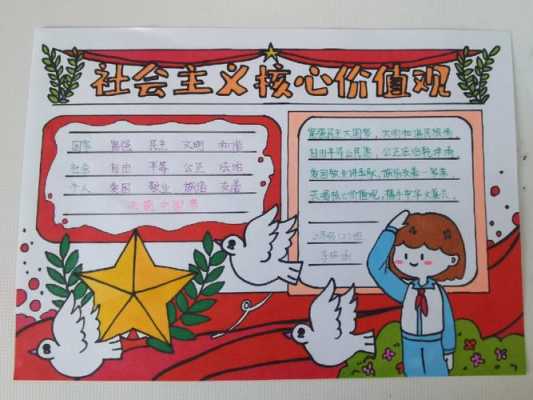 社会主义核心价值观
国家 富强 民主 文明 和谐
社会 自由 平等 公正 法治
个人 爱国 敬业 诚信 友善
富强民主大国梦，文明和谐民族
自由平等公民意，公正法治乾坤
爱国敬业讲奉献，诚信友善一家亲
核心价值观，携手中华